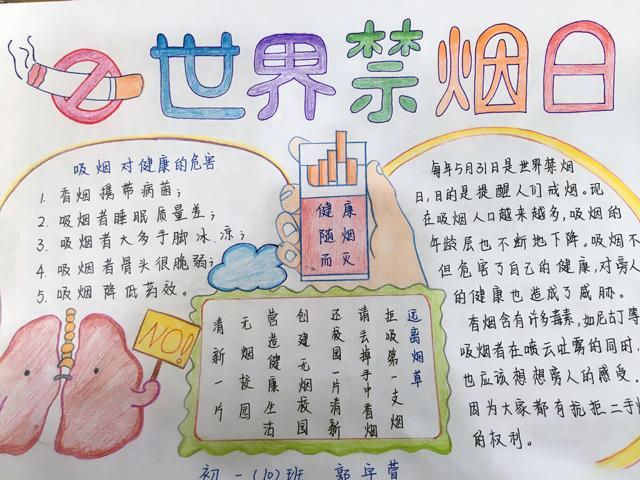 世界禁烟日
吸烟对健康的危害
1. 香烟携带病菌；
2. 吸烟者睡眠质量差；
3. 吸烟者大多手脚冰凉；
4. 吸烟者骨头很脆弱；
5. 吸烟降低药效。
健康
随烟
而灭
每年5月31日是世界禁烟
日，目的是提醒人们戒烟。现
在吸烟人口越来越多，吸烟的
年龄层也不断地下降。吸烟不
但危害了自己的健康，对旁人
的健康也造成了威胁。
香烟含有许多毒素，如尼古丁等
吸烟者在喷云吐雾的同时，
也应该想想旁人的感受。
因为大家都有抗拒二手烟
的权利。
NO!
远离烟草
拒吸第一支烟
请丢掉手中香烟
还校园一片清新
创建无烟校园
营造健康生活
无烟校园
清新一片
初一(10)班 郭